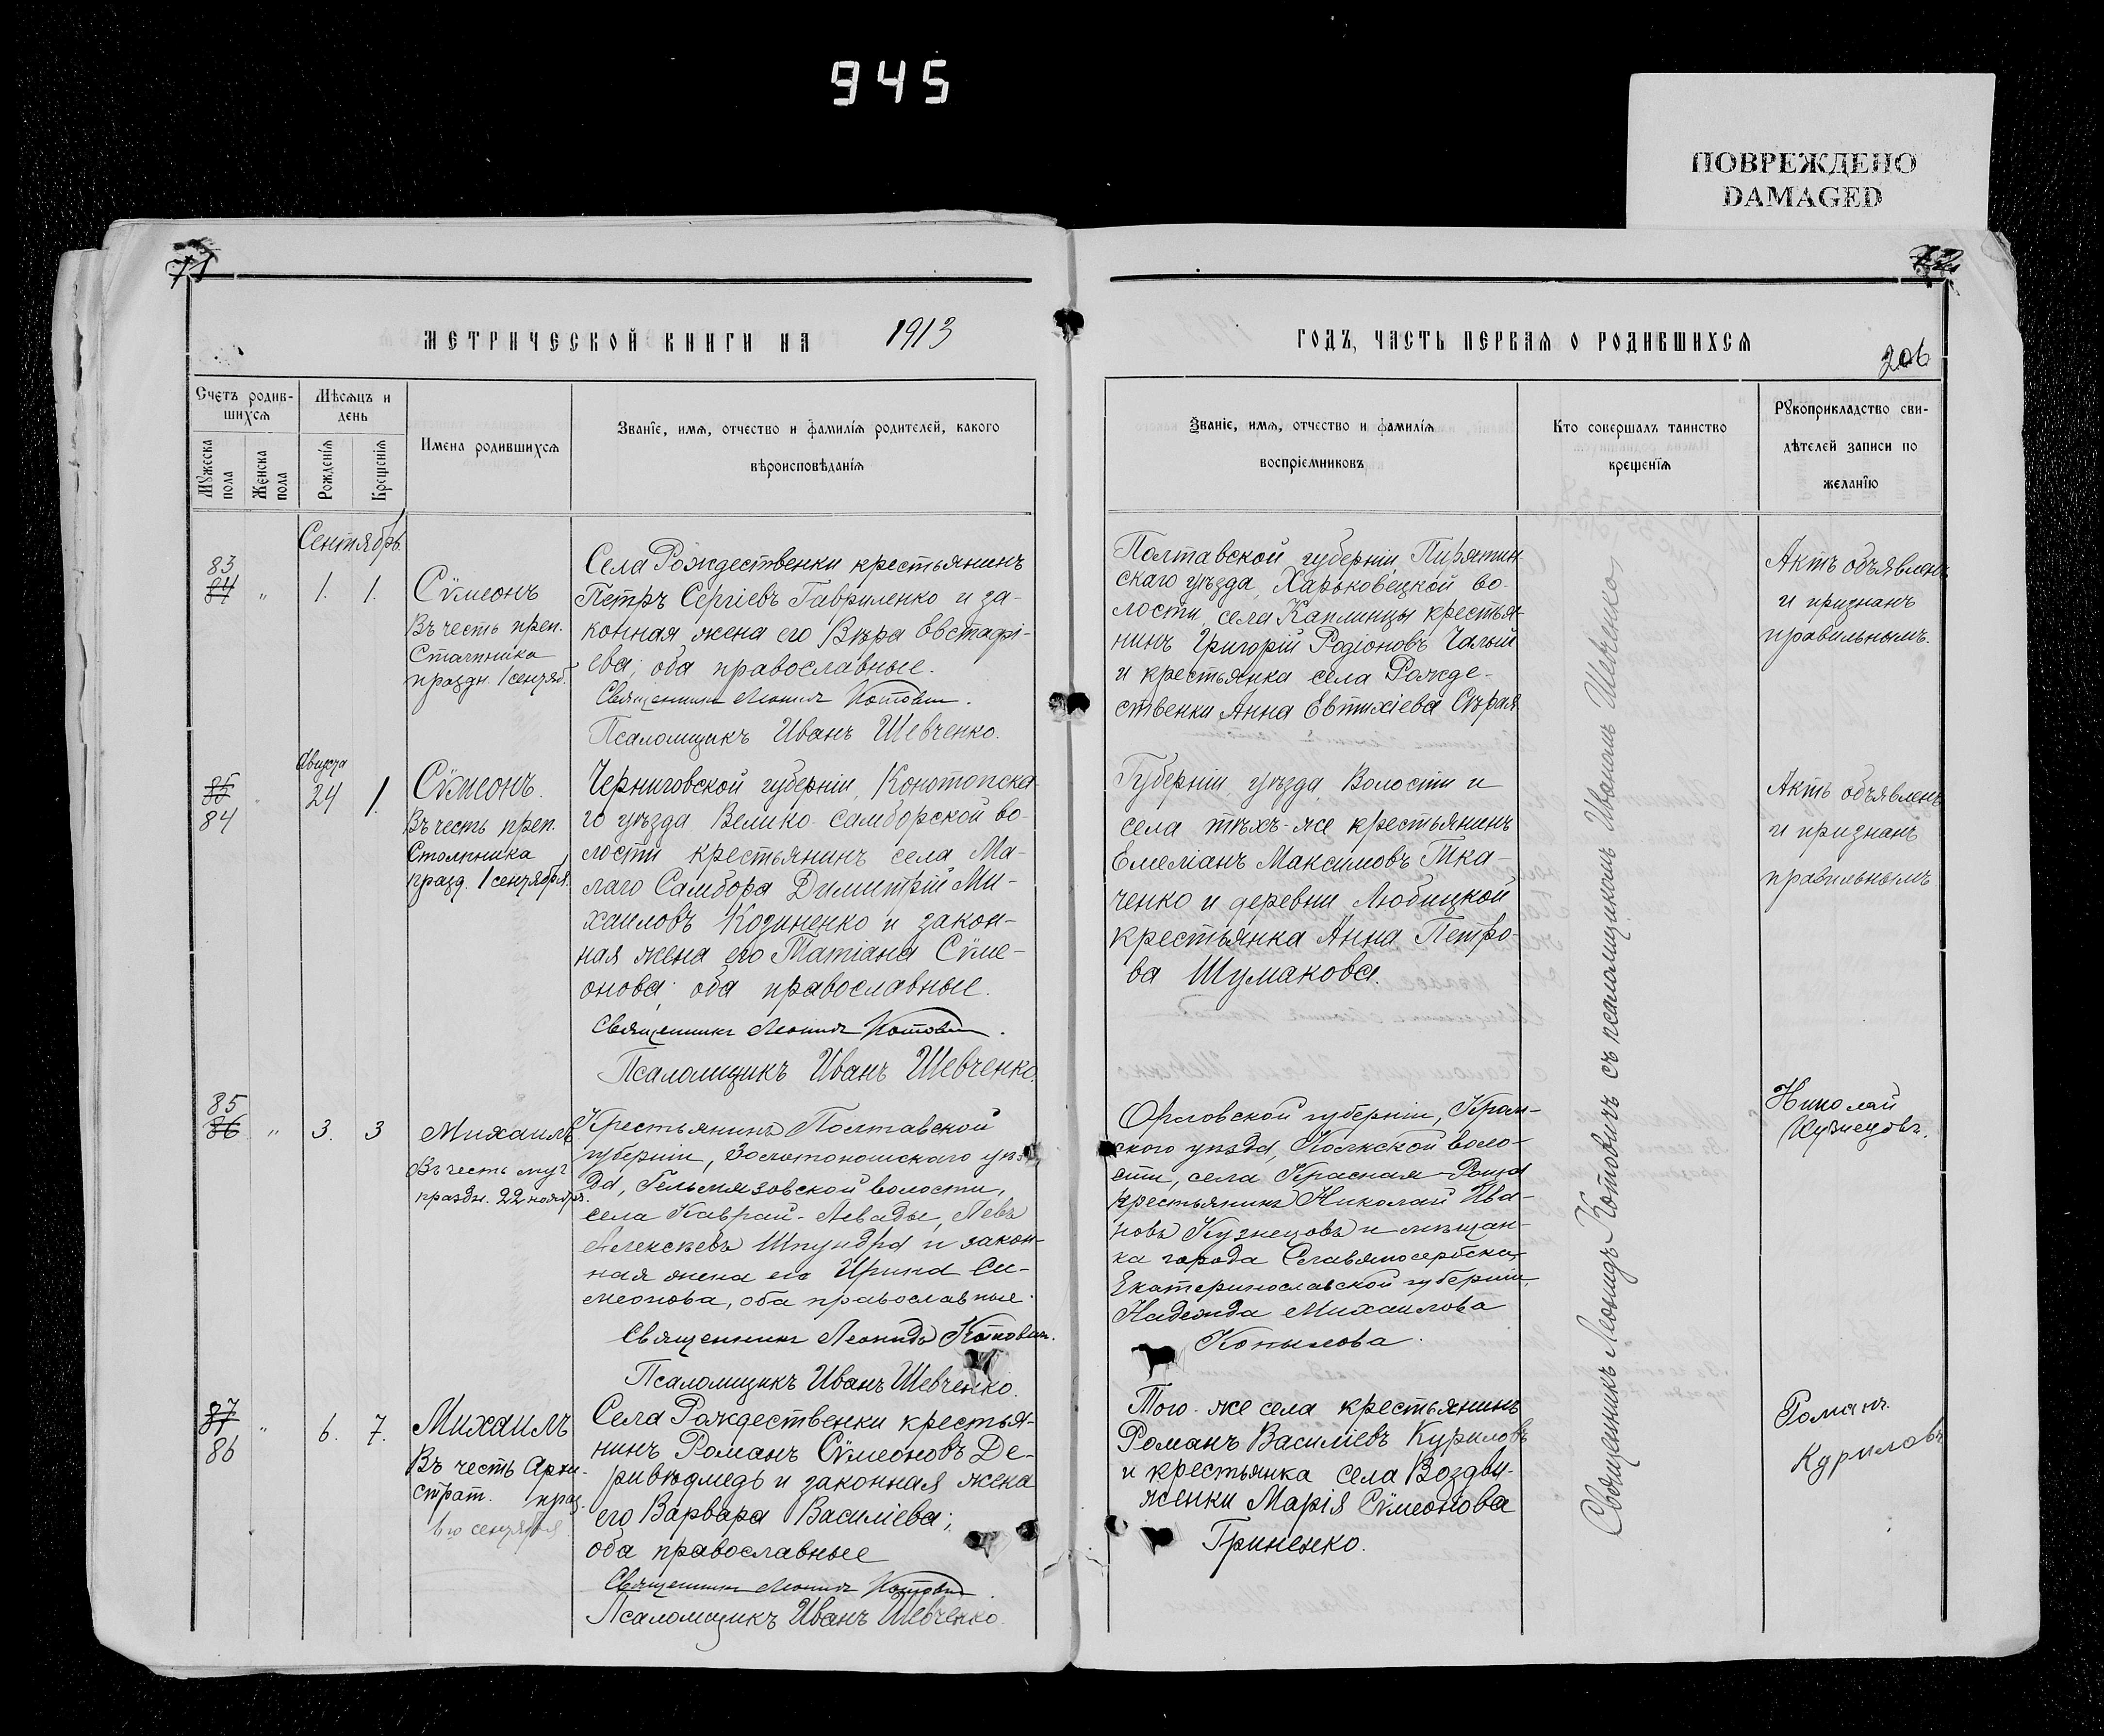 945
ПОВРЕЖДЕНО
DAMAGED
71
72
МЕТРИЧЕСКОЙ КНИГИ НА 1913
ГОДЪ, ЧАСТЬ ПЕРВАЯ О РОДИВШИХСЯ
206
Счетъ родив-
шихся
Мужеска
пола
Женска
пола
Мѣсяцъ и
день
Рожденія
Крещенія
Имена родившихся
Званіе, имя, отчество и фамилія родителей, какого
вѣроисповѣданія
Званіе, имя, отчество и фамилія
воспріемниковъ
Кто совершалъ таинство
крещенія
Рукоприкладство сви-
дѣтелей записи по
желанію
Сентябрь.
83
84 " 1. 1.
Сѵмеонъ
Въ честь преп.
Столпника
праздн. 1 сентяб.
Села Рождественки крестьянинъ
Петръ Сергіевъ Гавриленко и за-
конная жена его Вѣра Евстафі-
ева; оба православные.
Священникъ Леонидъ Котович.
Псаломщикъ Иванъ Шевченко.
Полтавской губерніи, Пирятин
скаго уѣзда, Харьковецкой во-
лости, села Каплинцы крестья-
нинъ Григорій Родіоновъ Чалый
и крестьянка села Рожде-
ственки Анна Евтихіева Сѣрая
Актъ объявленъ
и признанъ
правильнымъ.
Августа
85
84
24 1.
Сѵмеонъ.
Въ честь преп.
Столпника
празд. 1 сентября.
Черниговской губерніи, Конотопска-
го уѣзда Велико-самборской во-
лости крестьянинъ села Ма-
лаго Самбора Димитрій Ми-
хаиловъ Козиненко и закон-
ная жена его Татіана Сѵме-
онова; оба православные.
Священникъ Леонидъ Котович.
Псаломщикъ Иванъ Шевченко.
Губерніи, уѣзда, Волости и
села тѣхъ-же крестьянинъ
Емеліанъ Максимовъ Тка-
ченко и деревни Любицкой
крестьянка Анна Петро-
ва Шумакова.
Актъ объявленъ
и признанъ
правильнымъ
85
86 " 3. 3
Михаилъ
Въ честь муч
праздн. 22 ноября.
Крестьянинъ Полтавской
губерніи, Золотоношскаго уѣз-
да, Гельмязовской волости,
села Каврай-Левады, Левъ
Алексѣевъ Шпундра и закон-
ная жена его Ирина Си-
меонова, оба православные.
Священникъ Леонидъ Котович.
Псаломщикъ Иванъ Шевченко.
Орловской губерніи, Кром-
ского уѣзда, волo-
сти, села Красная-Роща
крестьянинъ Николай Ива-
новъ Кузнецовъ и мѣщан-
ка города Славяносербска,
Екатеринославской губерніи,
Надежда Михаилова
Копылова.
Николай
Кузнецовъ.
87
86
" 6. 7.
Михаилъ
Въ честь Архи-
страт. праз.
6го сентября
Села Рождественки крестья-
нинъ Романъ Сѵмеоновъ Де-
ривѣдмедь и законная жена
его Варвара Василіева;
оба православные
Священникъ Леонидъ Котович.
Псаломщикъ Иванъ Шевченко.
Того-же села крестьянинъ
Романъ Василіевъ Куриловъ
и крестьянка села Воздви-
женки Марія Сѵмеонова
Гриненко.
Романъ
Куриловъ
Священникъ Леонидъ Котовичъ съ псаломщикомъ Иваномъ Шевченко